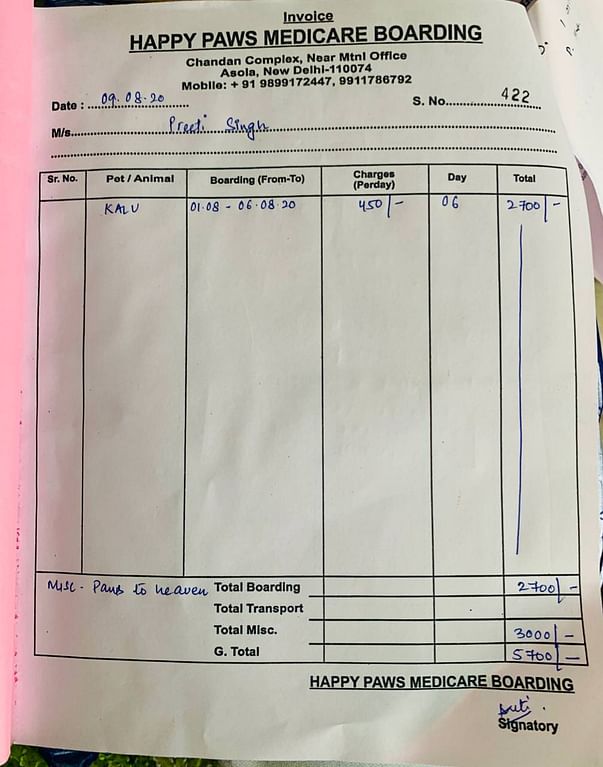 Invoice
HAPPY PAWS MEDICARE BOARDING
Chandan Complex, Near Mtnl Office
Asola, New Delhi-110074
Mobile: + 91 9899172447, 9911786792
Date : 09.08.20 S. No. 422
M/s. Preeti Singh
Sr. No. Pet / Animal Boarding (From-To) Charges (Perday) Day Total
KALU 01.08 - 06.08.20 450/- 06 2700/-
Misc - Paws to heaven Total Boarding 2700/-
Total Transport
Total Misc. 3000/-
G. Total 5700/-
HAPPY PAWS MEDICARE BOARDING
Signatory